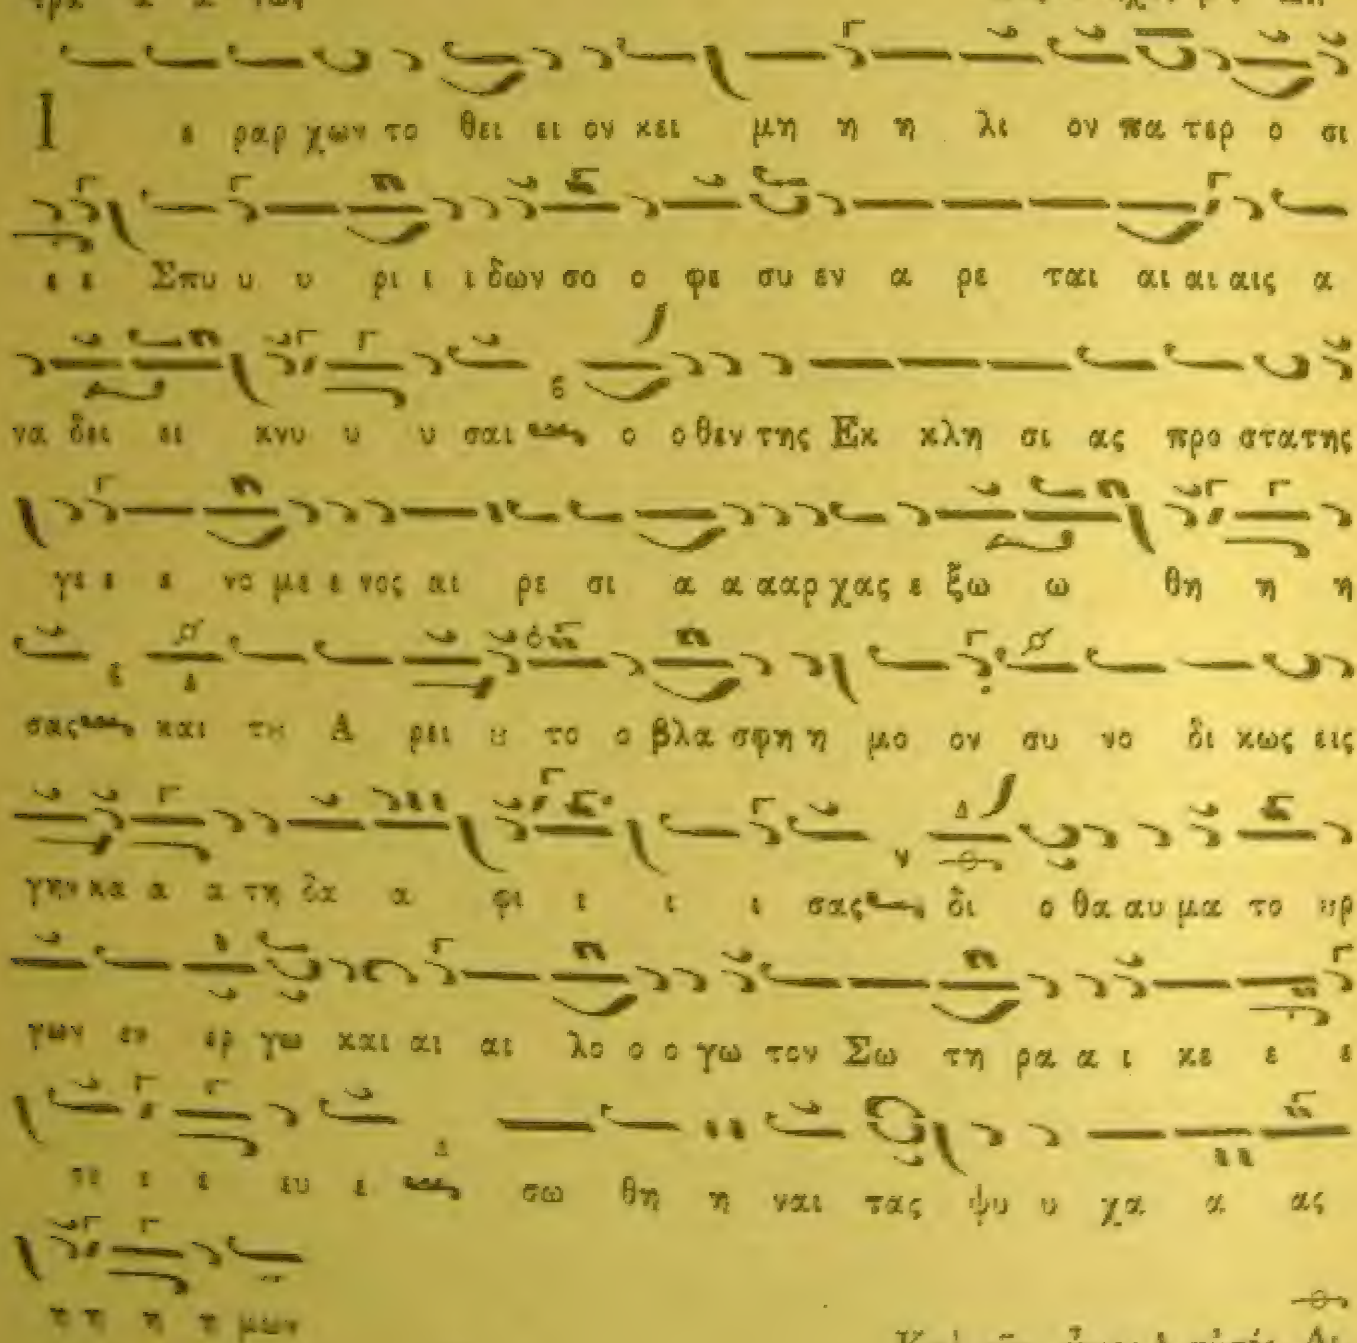 Ι ε ραρ χων το θει ει ον κει μη η η λι ον πα τερ ο σι
ε ε Σπυ υ υ ρι ι ι δων σο ο φε συ εν α ρε ται αι αι αις α
να δει ει κνυ υ υ σαι ο ο θεν της Εκ κλη σι ας προ στατης
γε ε ε νο με ε νος αι ρε σι α α ααρ χας ε ξω ω θη η η
σας και τȣ Α ρει ȣ το ο βλα σφη η μο ον συ νο δι κως εις
γην κα α α τη δα α φι ι ι ι σας δι ο θα αυ μα το ȣρ
γων εν ερ γω και αι αι λο ο ο γω τον Σω τη ρα α ι κε ε ε
τε ε ε ευ ε σω θη η ναι τας ψυ υ χα α ας
η η η η μων